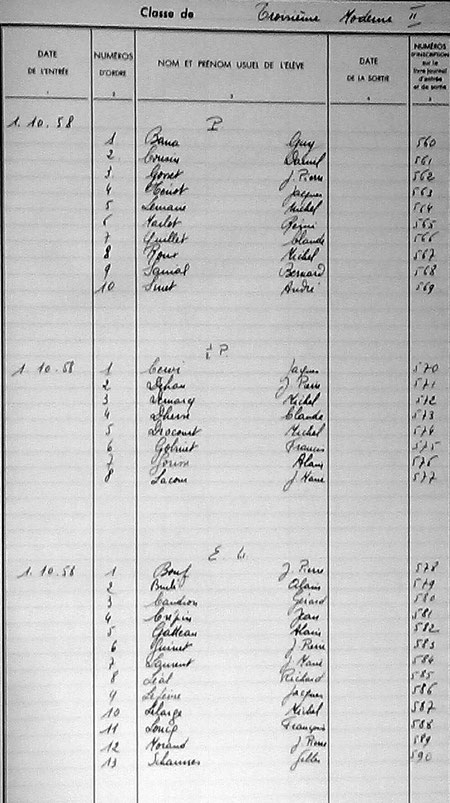 Classe de Troisième Moderne II
DATE DE L'ENTRÉE NUMÉROS D'ORDRE NOM ET PRÉNOM USUEL DE L'ÉLÈVE DATE DE LA SORTIE NUMÉROS D'INSCRIPTION sur le livre journal d'entrée et de sortie
1 2 3 4 5
1.10.58 P
1 Bana Guy 560
2 Cousin Daniel 561
3 Gosset J. Pierre 562
4 Jacques 563
5 Lemaire Michel 564
6 Marlot Rémi 565
7 Quillet Claude 566
8 Roux Michel 567
9 Samal Bernard 568
10 Sinet André 569
½ P.
1.10.58 1 Cervi Jacques 570
2 Dehan J. Pierre 571
3 Demarcq Michel 572
4 Dherse Claude 573
5 Drocourt Michel 574
6 Gobinet Francis 575
7 Alain 576
8 Lacour J. Marie 577
E. L.
1.10.58 1 Boeuf J. Pierre 578
2 Alain 579
3 Caudron Gérard 580
4 Crépin Jean 581
5 Gatteau Alain 582
6 Guinet J. Pierre 583
7 Laurent J. Marie 584
8 Léal Richard 585
9 Lefèvre Jacques 586
10 Lelarge Michel 587
11 François 588
12 Morand J. Pierre 589
13 Gilles 590